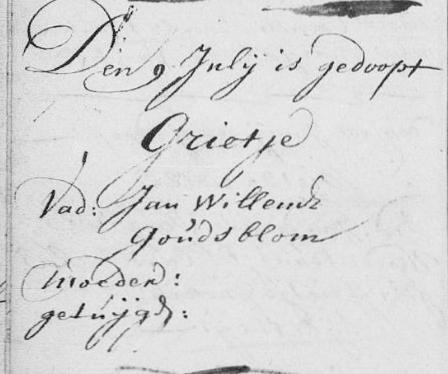 Den 9 Julij is gedoopt
Grietje
Vad: Jan Willemsz
Goudsblom
moeder:
getuijg: